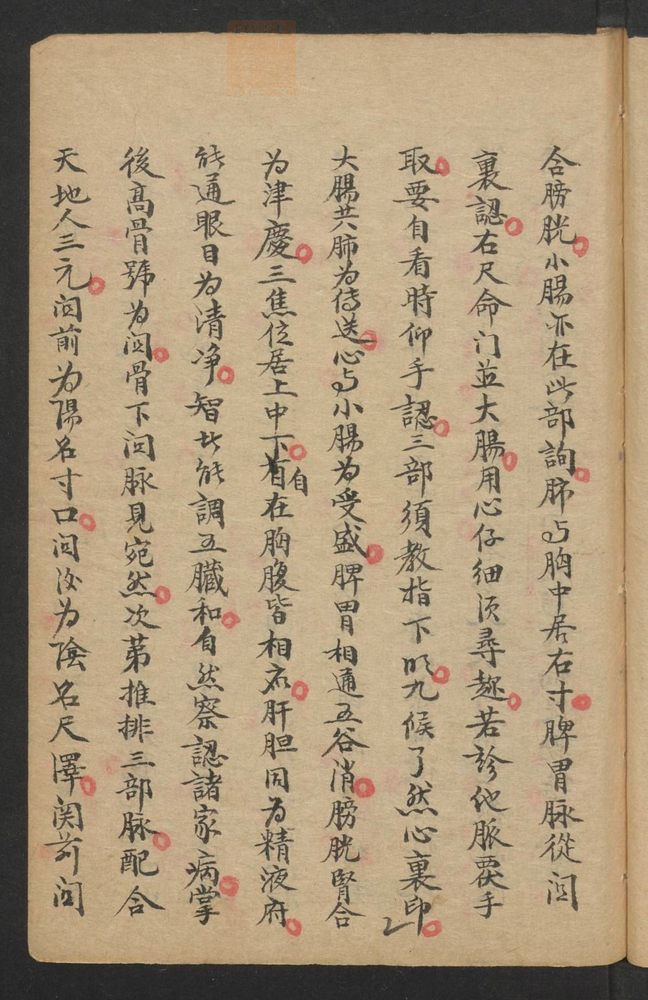 合膀胱小腸亦在此部詢肺与胸中居右寸脾胃脉從関
裏認右尺命门並大腸用心仔细须尋趂若診他脈覆手
取要自看時仰手認三部須教指下明九候了然心裏印
大腸共肺为传送心与小腸为受盛脾胃相通五谷消膀胱腎合
为津慶三焦位居上中下自在胸腹皆相应肝胆同为精液府
能通眼目为清净智者能調五臓和自然察認諸家病掌
後髙骨號为関骨下関脉見宛然次第推排三部脉配合
天地人三元関前为陽名寸口関後为陰名尺澤関前関